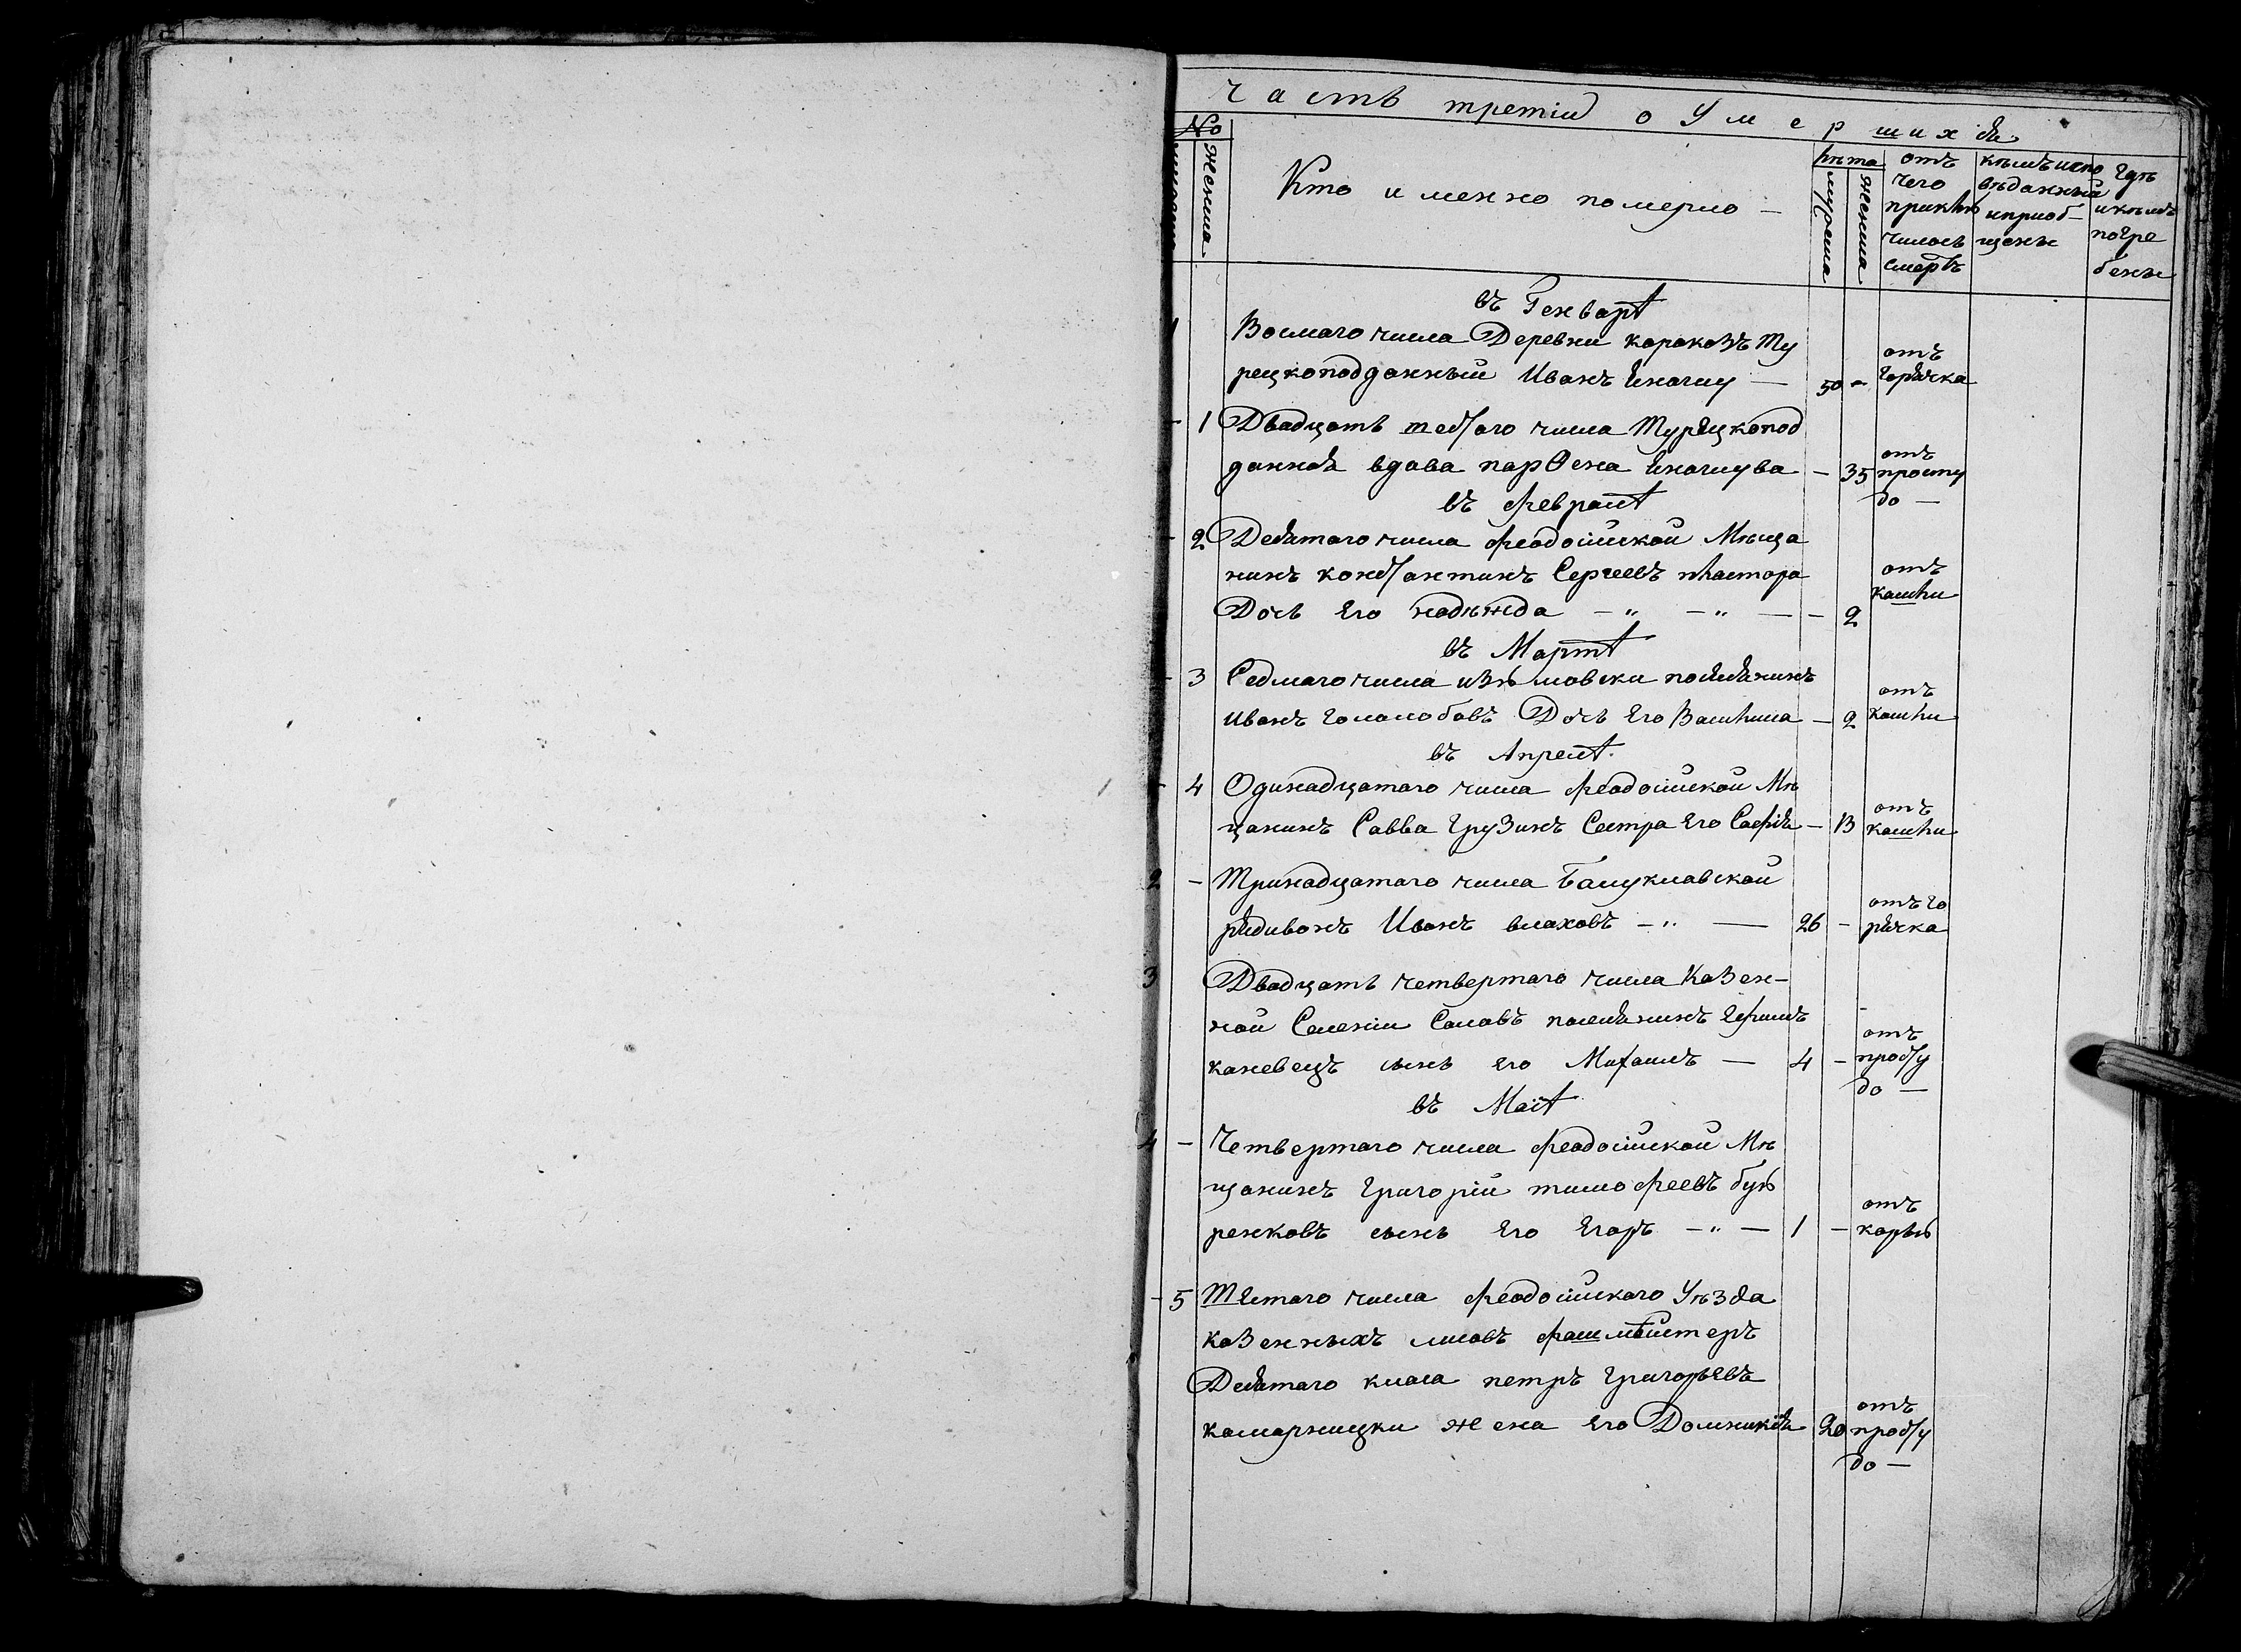 Часть третія о Умершихъ
№
Женска
Кто именно померло —
лѣта
мужеска
женска
отъ чего приклю чилось смерть
кѣмъ испо вѣданный и приоб- щены
гдѣ и кѣмъ погре бены
въ Генварѣ
1 Восмаго числа Деревни кораковъ Ту
рецкоподданный Иванъ Еначиу — 50 - отъ горячка
- 1 Двадцать шестаго числа Турецкопод
данная вдова парѳена Еначиува - 35 отъ просту до —
въ февралѣ
- 2 Девятаго числа феодосійской Мѣща
нинъ константинъ Сергеевъ пластара
Дочь Его надѣжда — „ — „ — - 2 отъ кашли
въ Мартѣ
- 3 Седмаго числа поселянинъ
иванъ голомобовъ Дочь Его Василиса - 2 отъ кашли
въ Апрелѣ
- 4 Одинадцатаго числа феодосійской Мѣ
щанинъ Савва Грузинъ Сестра Его Софія - 13 отъ кашли
2 - Тринадцатаго числа Балуклавской
рядивонъ Иванъ влаховъ — „ — 26 - отъ го рячка
3 Двадцать четвертаго числа Казен-
ной Селеніи Саловъ поселянинъ Ефимъ
каневецъ сынъ его Михаилъ — 4 - отъ просту до —
въ Маіѣ
4 - Четвертаго числа феодосійской Мѣ
щанинъ Григорій тимофеевъ буъ
ренковъ сынъ Его Егоръ — „ — 1 - отъ коръи
- 5 Шестаго числа феодосійскаго Уѣзда
казенныхъ лисовъ фашмѣйстеръ
Девятаго класа петръ Григорьевъ
камарницки жена Его Домникія 20 отъ просту до —